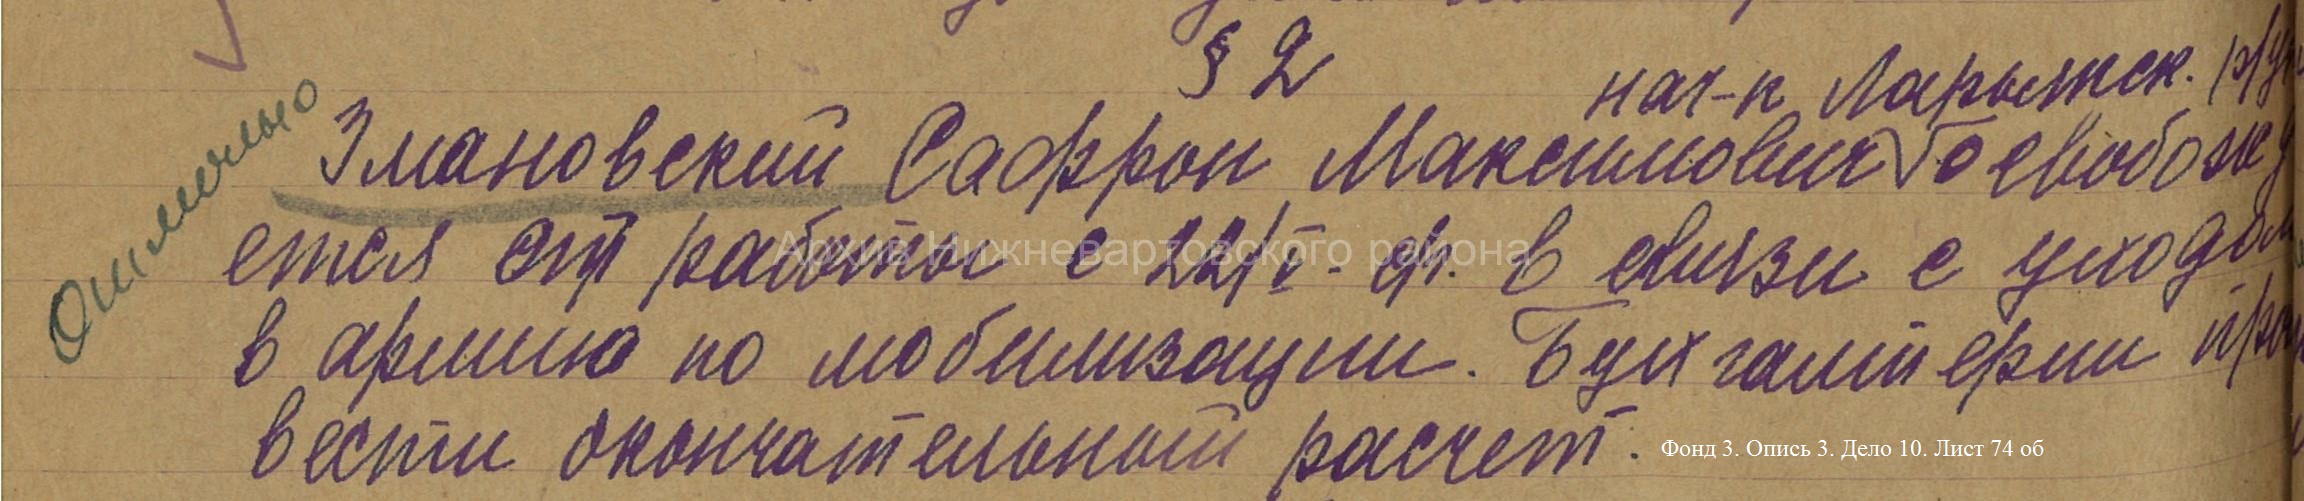 § 2
нач-к Ларьякск. р/у
Змановский Сафрон Максимович освобожд
ается от работы с 22/V-ф. в связи с уходом
в армию по мобилизации. Бухгалтерии про
вести окончательный расчет.
Архив Нижневартовского района
Фонд 3. Опись 3. Дело 10. Лист 74 об